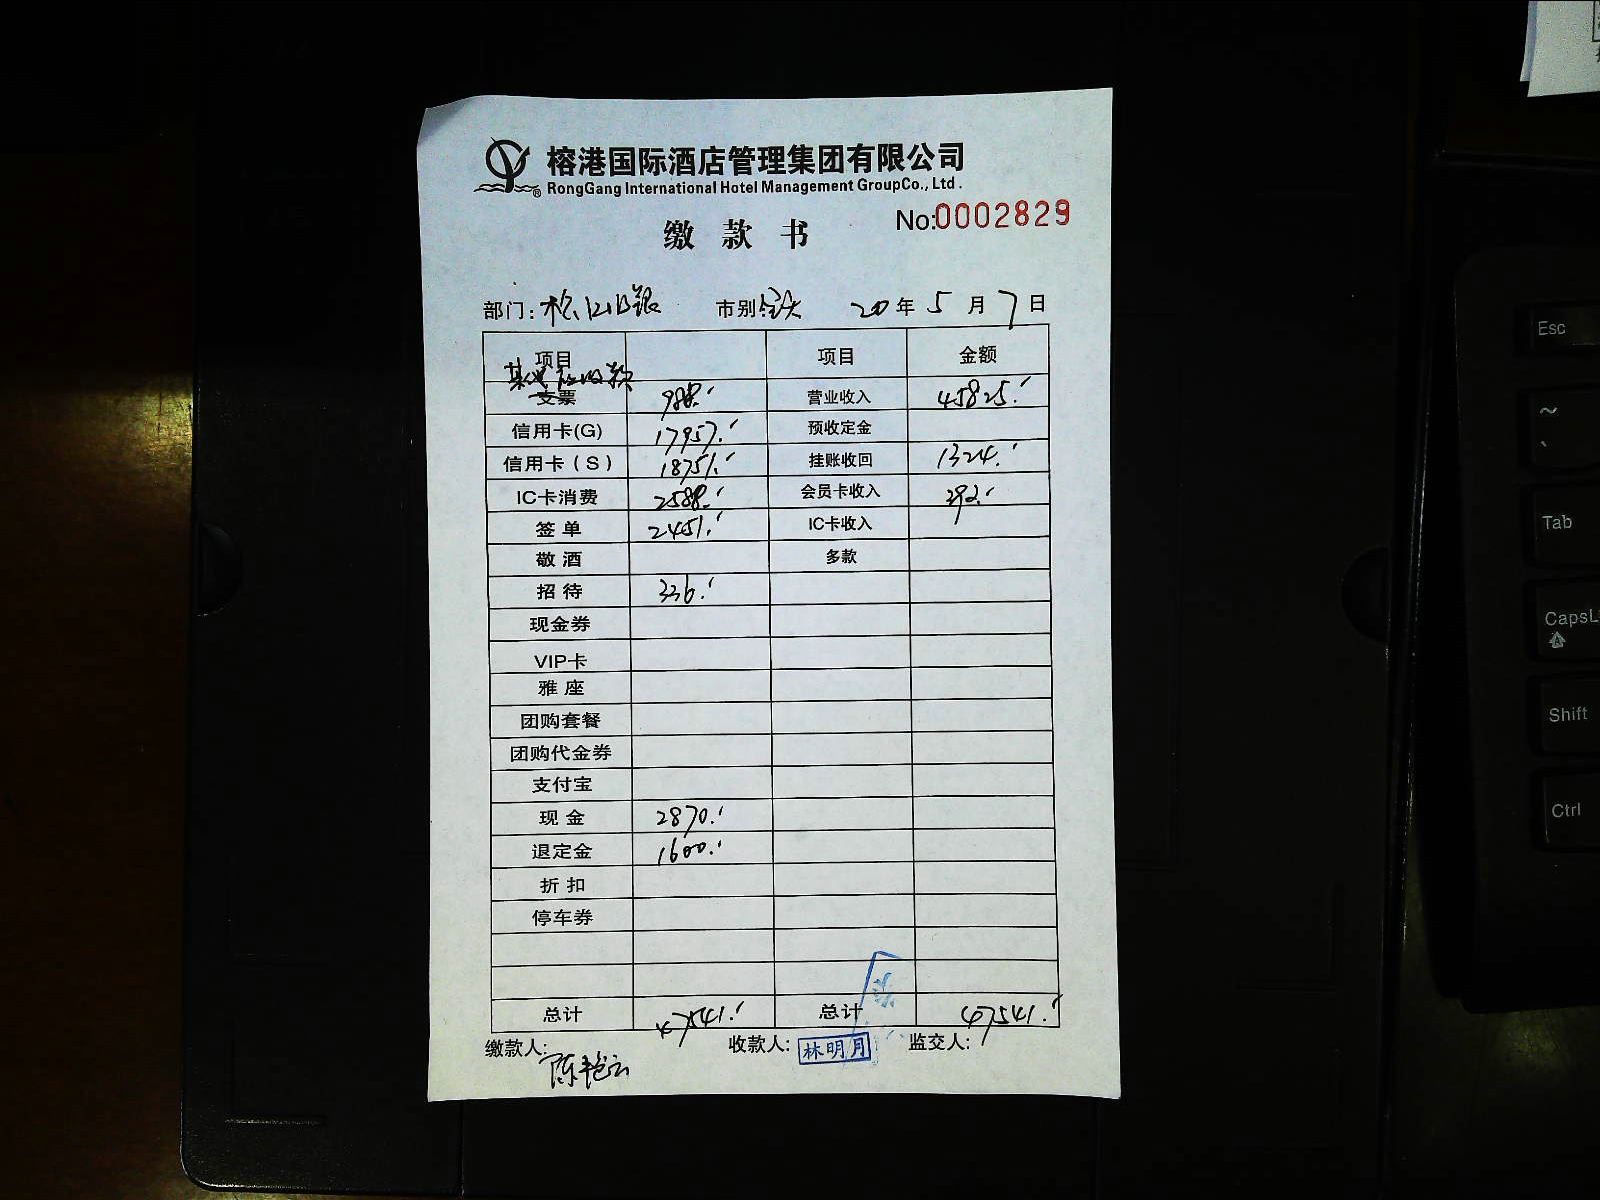 榕港国际酒店管理集团有限公司
RongGang International Hotel Management GroupCo., Ltd.
No:0002829
缴款书
部门: 市别 20年5月7日
项目 项目 金额
支票 988. 营业收入 45825.
信用卡(G) 17957. 预收定金
信用卡(S) 18751. 挂账收回 1324.
IC卡消费 2588. 会员卡收入 392.
签单 2451. IC卡收入
敬酒 多款
招待 336.
现金券
VIP卡
雅座
团购套餐
团购代金券
支付宝
现金 2870.
退定金 1600.
折扣
停车券
总计 47541. 总计 47541.
缴款人: 收款人: 林明月 监交人:
Esc
~
Tab
Shift
Ctrl